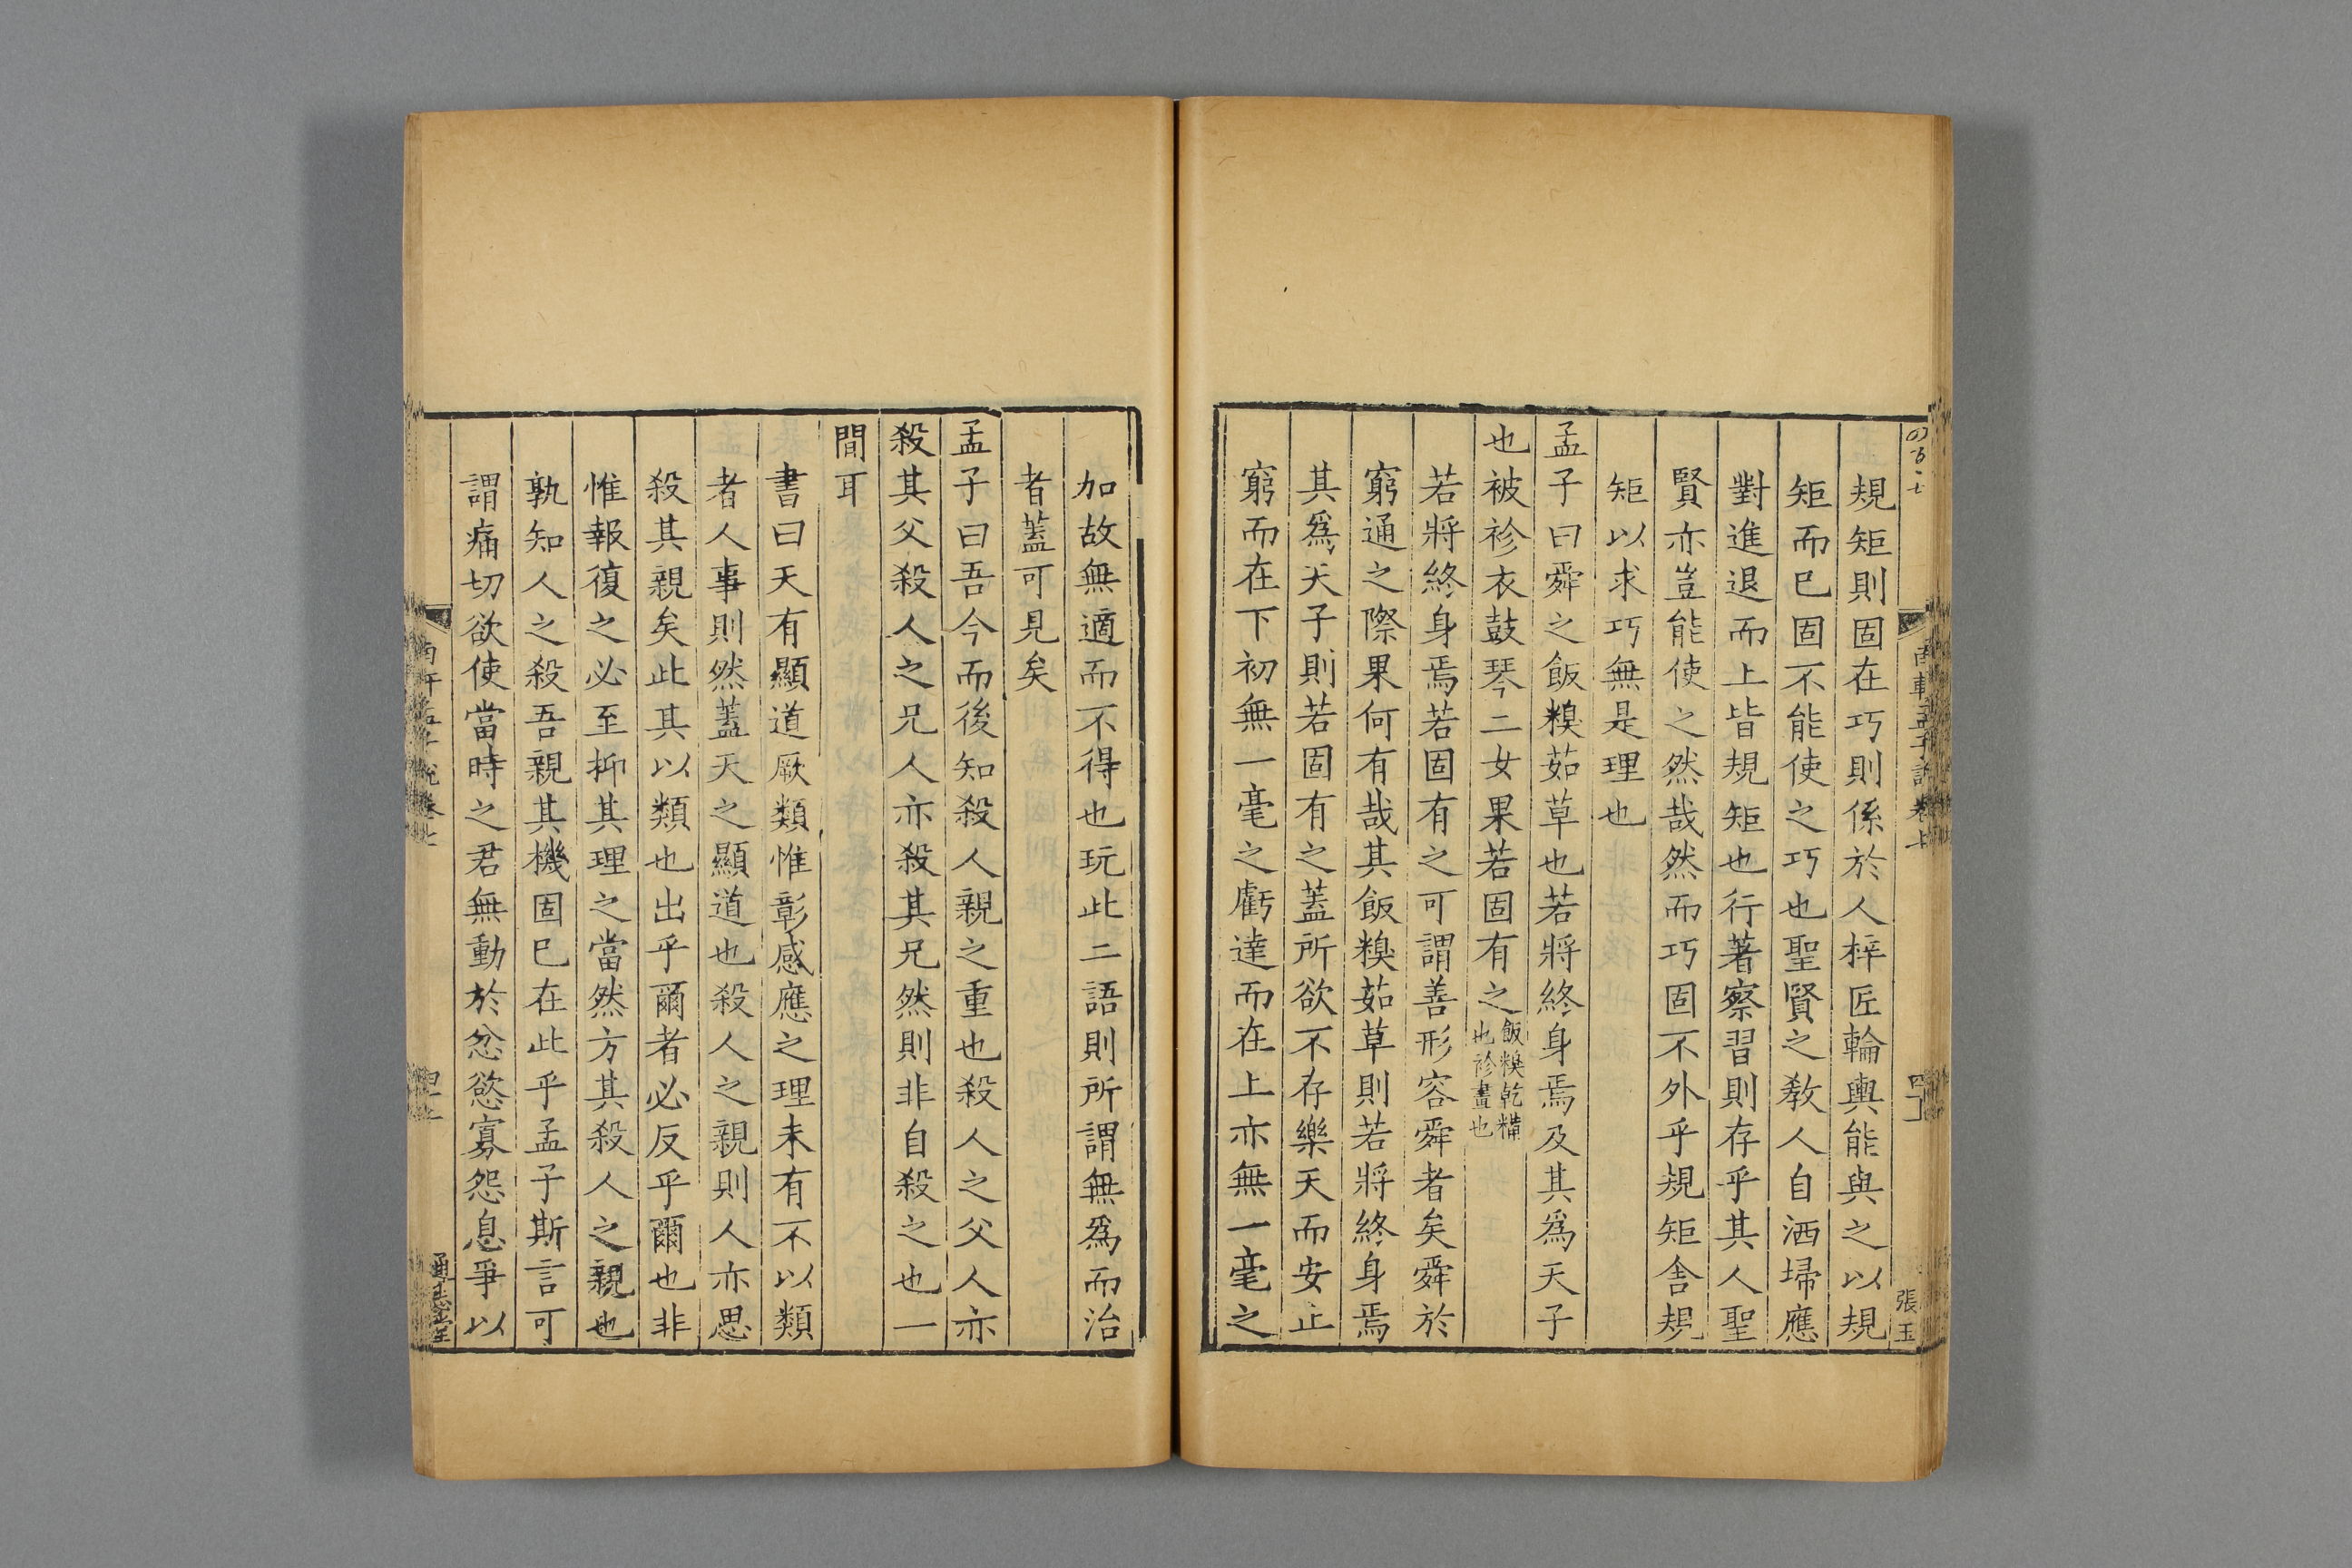 規矩則固在巧則係於人梓匠輪輿能與之以規
矩而巳固不能使之巧也聖賢之教人自洒埽應
對進退而上皆規矩也行著察習則存乎其人聖
賢亦豈能使之然哉然而巧固不外乎規矩舍規
矩以求巧無是理也
孟子曰舜之飯糗茹草也若將終身焉及其爲天子
也被袗衣鼓琴二女果若固有之飯糗乾糒
也袗畫也
若將終身焉若固有之可謂善形容舜者矣舜於
窮通之際果何有哉其飯糗茹草則若將終身焉
其爲天子則若固有之蓋所欲不存樂天而安止
窮而在下初無一毫之虧達而在上亦無一毫之
張玉
加故無適而不得也玩此二語則所謂無爲而治
者蓋可見矣
孟子曰吾今而後知殺人親之重也殺人之父人亦
殺其父殺人之兄人亦殺其兄然則非自殺之也一
閒耳
書曰天有顯道厥類惟彰感應之理未有不以類
者人事則然蓋天之顯道也殺人之親則人亦思
殺其親矣此其以類也出乎爾者必反乎爾也非
惟報復之必至抑其理之當然方其殺人之親也
孰知人之殺吾親其機固巳在此乎孟子斯言可
謂痛切欲使當時之君無動於忿慾寡怨息爭以
通志堂